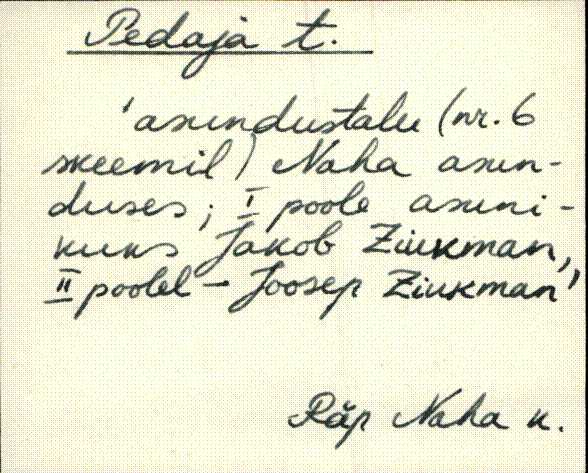 Pedaja t.
'asundustalu (nr. 6
skeemil) Naha asun-
duses; I poole asuni-
kuks Jakob Ziukman,
II poolel - Joosep Ziukman'
Räp Naha k.